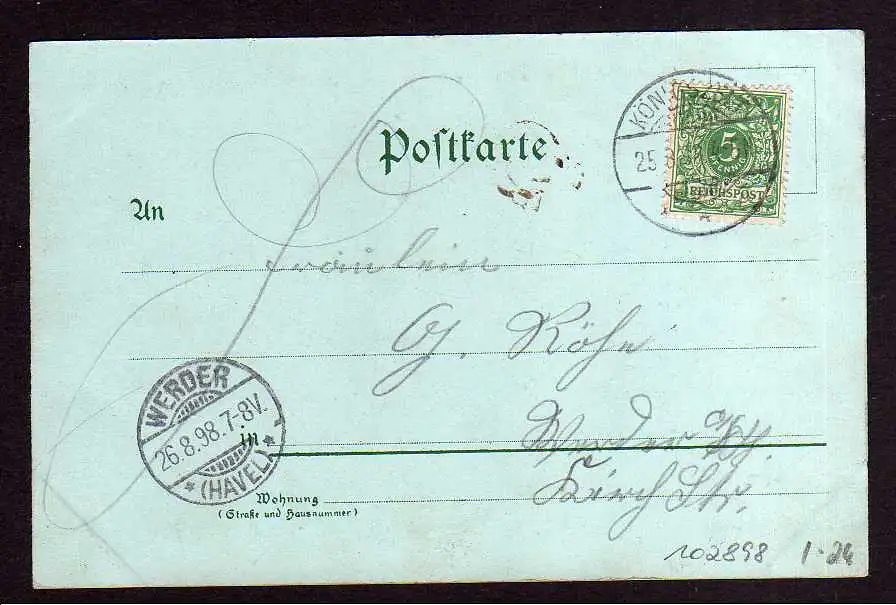 Postkarte
KÖNI
25
5
PFENNIG
REICHSPOST
An
Fräulein
G. Röhn
WERDER
26.8.98.7-8V.
*(HAVEL)*
in
Werder a/H.
Kirch Str.
Wohnung
(Straße und Hausnummer)
102898 1-24